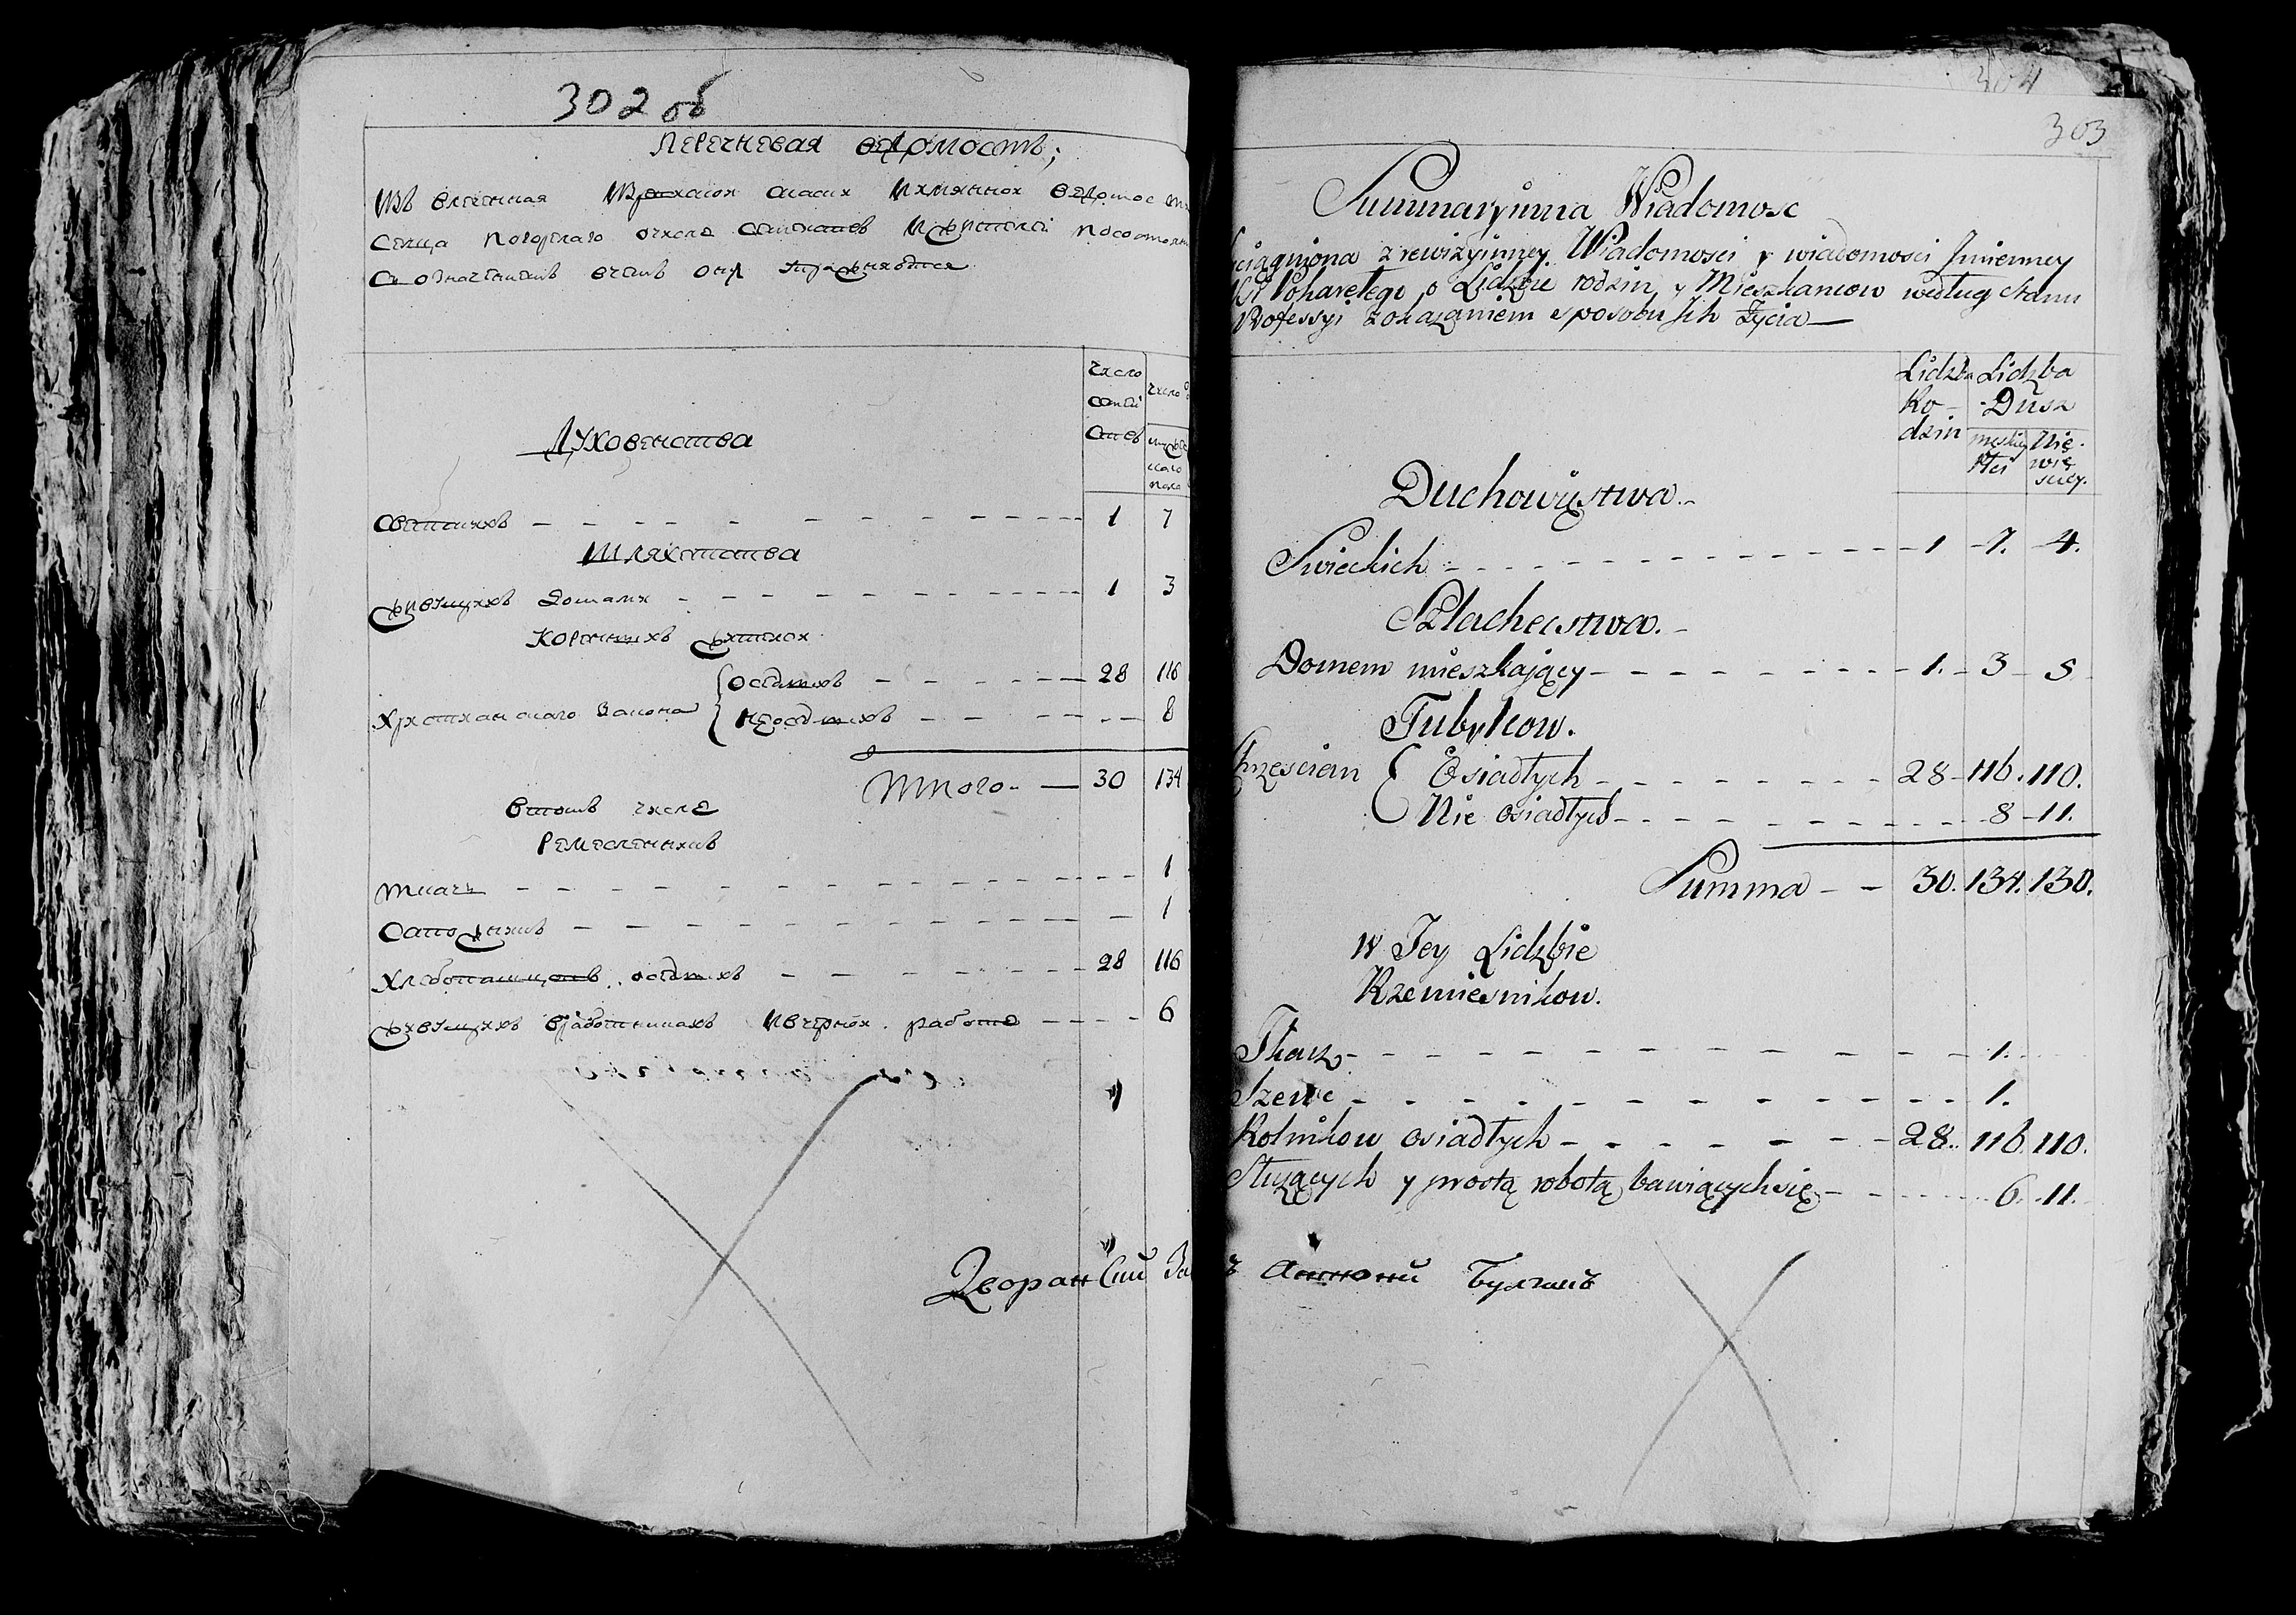 302 об
Перечневая ведомость,
Изъ влеченная
Селца Погорелаго очисле
Число
семей
число
Духовенства
Светскихъ 1 7
Шляхетства
живущихъ домами 1 3
Коренныхъ
Християнскаго Закона { оседлыхъ 28 116
неоседлыхъ 8
Итого 30 134
втомъ числе
Ремесленниковъ
Ткачь 1
Сапожникъ 1
Хлебопашцовъ оседлыхъ 28 116
живущихъ ичерной работе 6
Дворанский
304
303
Summaryinna Wiadomosc
ciągniona z rewizyinney Wiadomosci y wiadomosci Jmienney
Poharełego o Lidzbie rodzin y Mieszkancow według stanu
Professyi zokazaniem sposobu Jch życia
Lidzba Ro-dzin
Lidzba Dusz
męskiey płci
Nie-wię-sciey
Duchowęstwa
Swieckich 1 7. 4.
Szlachecstwa.
Domem mieszkający 1. 3 5
Tubylcow.
Chrzescian { Osiadłych 28 116. 110.
Nie osiadłych 8 11.
Summa 30. 134. 130.
w Tey Lidzbie
Rzemiesnikow.
Tkacz 1.
Szewc 1.
Rolnikow osiadłych 28. 116. 110.
Służących y prostą robotą bawiących się 6. 11.
Антоний Булгакъ